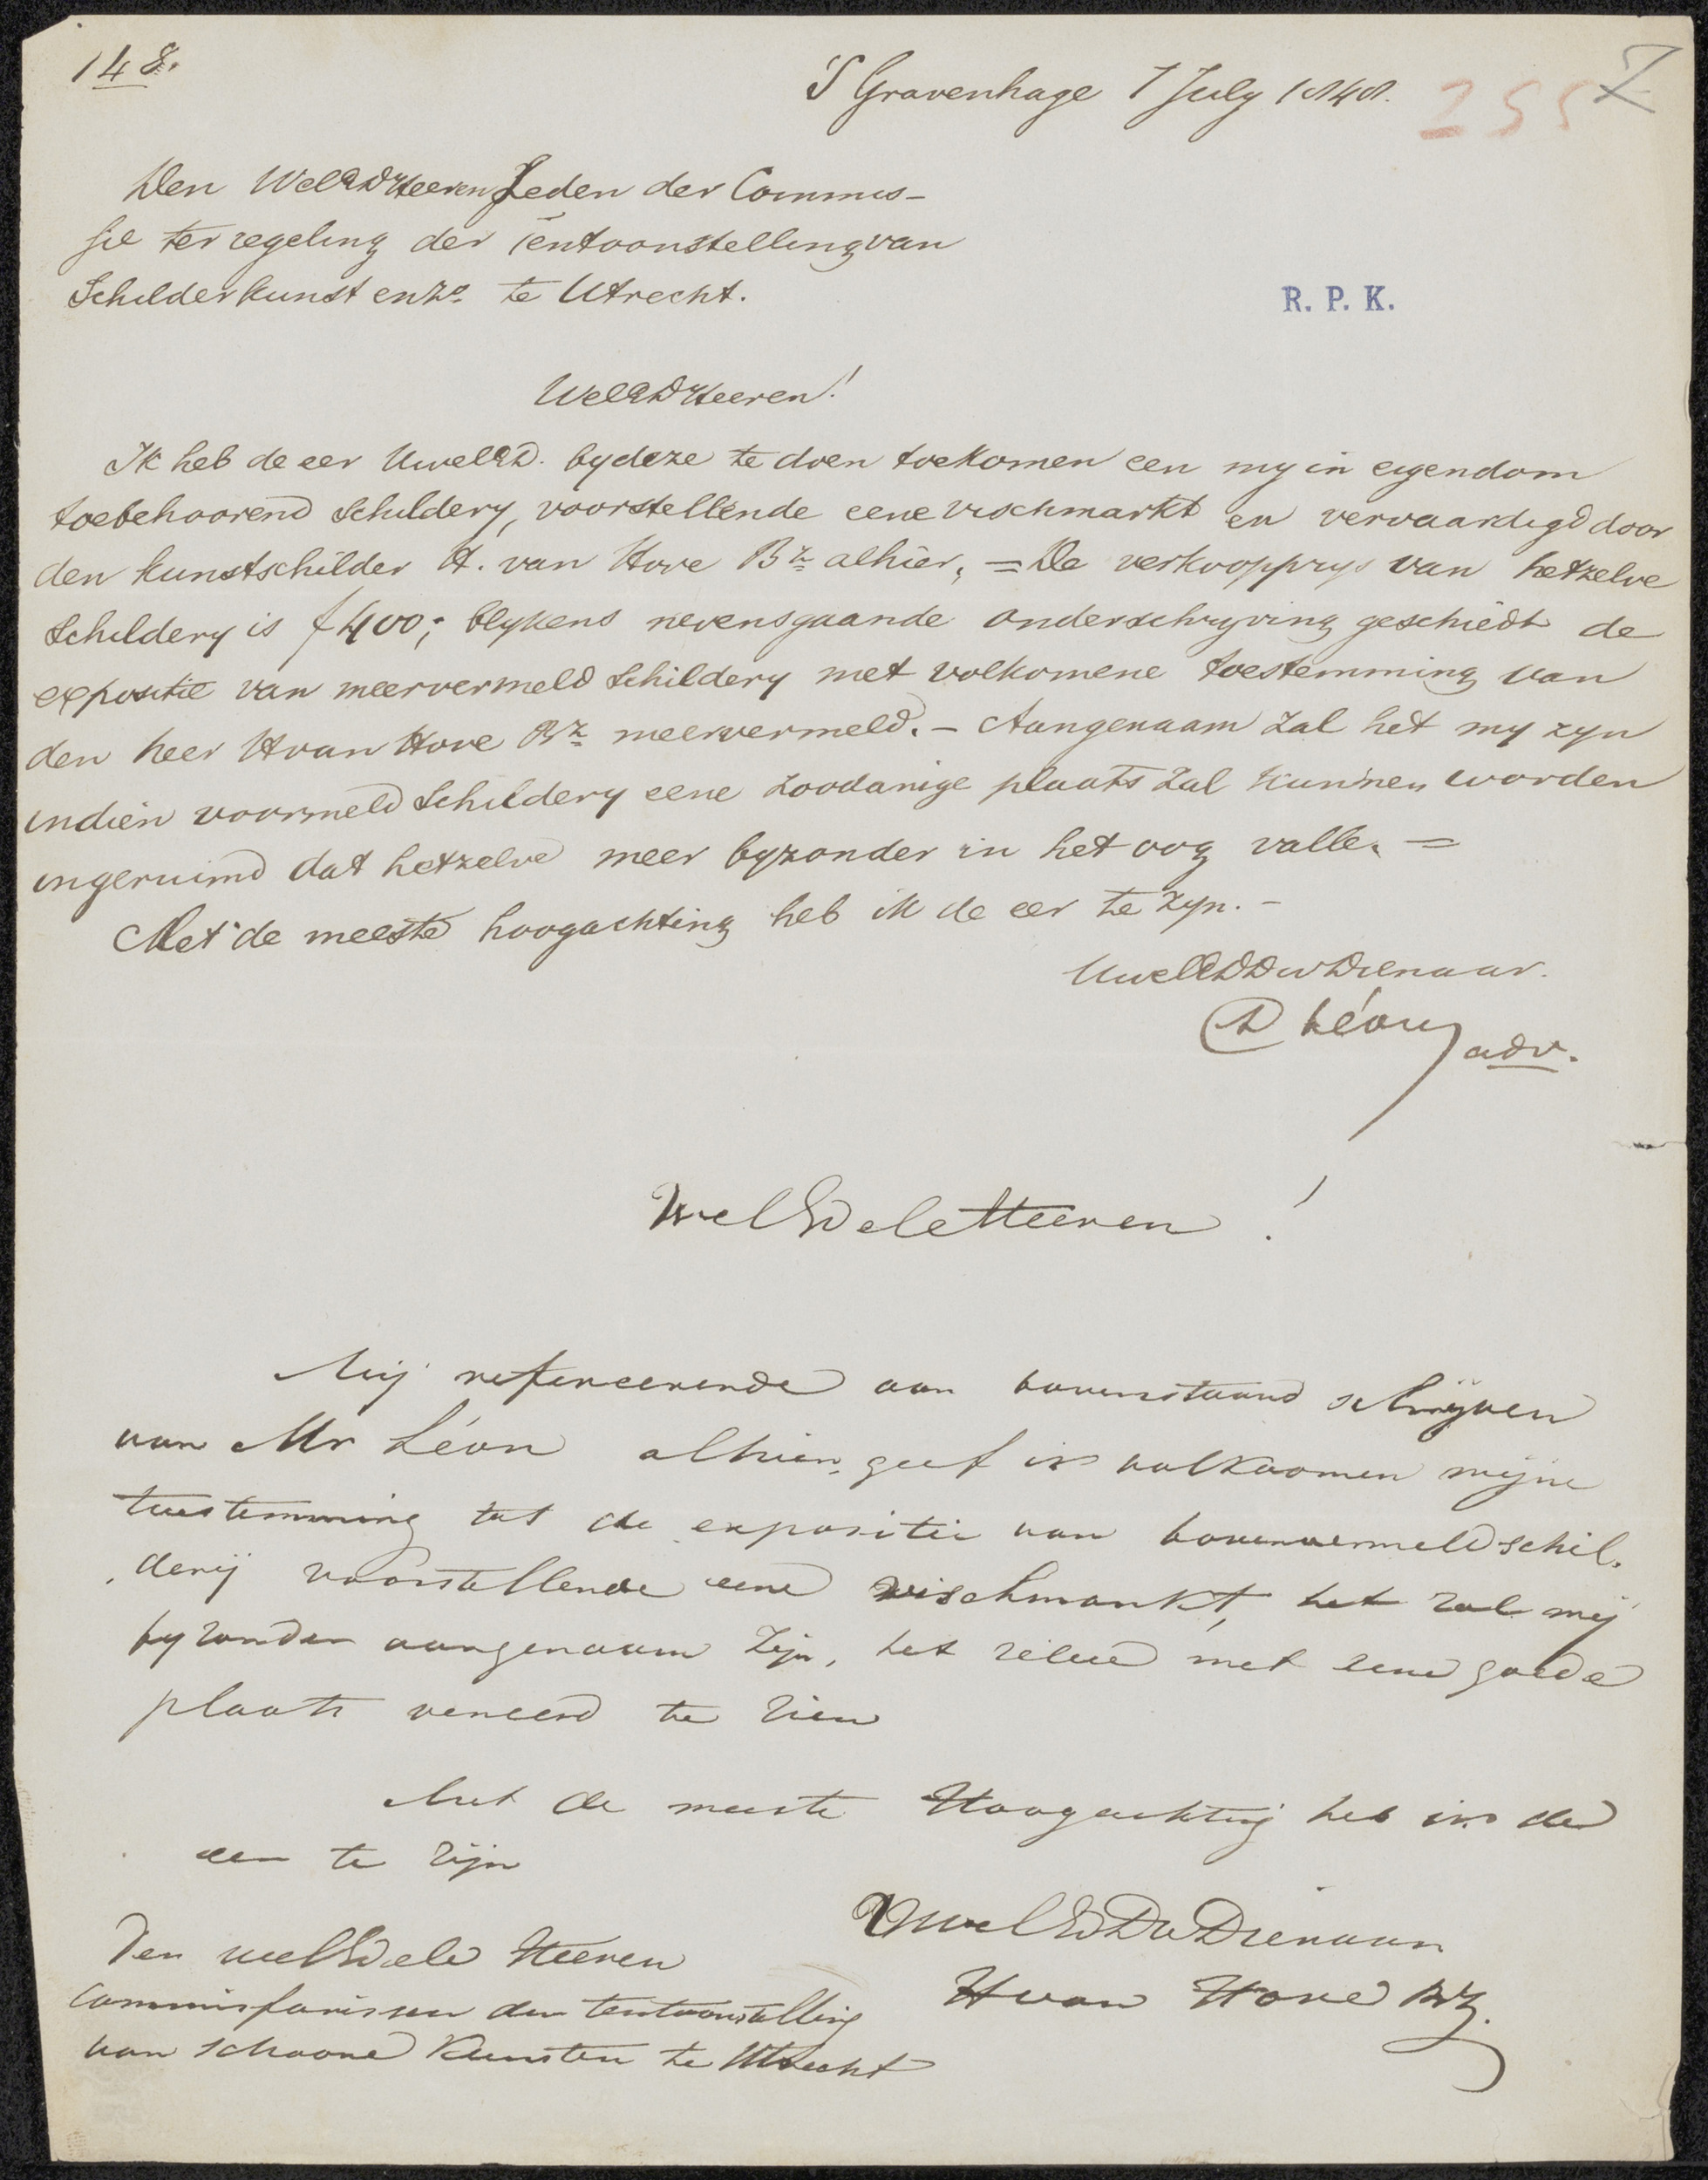 148.
'S Gravenhage 7 July 1848.
255
Z
Den WelEdHeeren Leden der Commis-
sie ter regeling der tentoonstelling van
Schilderkunst enz. te Utrecht.
R. P. K.
WelEdHeeren!
Ik heb de eer UwelEd. by deze te doen toekomen een my in eigendom
toebehoorend Schildery, voorstellende eene vischmarkt en vervaardigd door
den kunstschilder H. van Hove Bz alhier, = De verkoopprys van hetzelve
Schildery is f 400; blykens nevensgaande onderschryving geschiedt de
expositie van meervermeld Schildery met volkomene toestemming van
den heer H van Hove Bz meervermeld. - Aangenaam zal het my zyn
indien voormeld Schildery eene zoodanige plaats zal kunnen worden
ingeruimd dat hetzelve meer byzonder in het oog valle. =
Met de meeste hoogachting heb ik de eer te zyn. -
UwelEdDwDienaar.
D Léon
adv.
WelEdele Heeren!
Mij refereerende aan bovenstaand schrijven
van Mr Léon alhier, geef ik volkoomen mijne
toestemming tot de expositie van bovenvermeld schil-
derij voorstellende eene vischmarkt, het zal mij
byzonder aangenaam zijn, het zelve met eene goede
plaats vereerd te zien
Met de meeste Hoogachting heb ik de
eer te zijn
UwelEdDwDienaar
H van Hove Bz.
Den welEdele Heeren
Commissarissen der tentoonstelling
van Schoone Kunsten te Utrecht